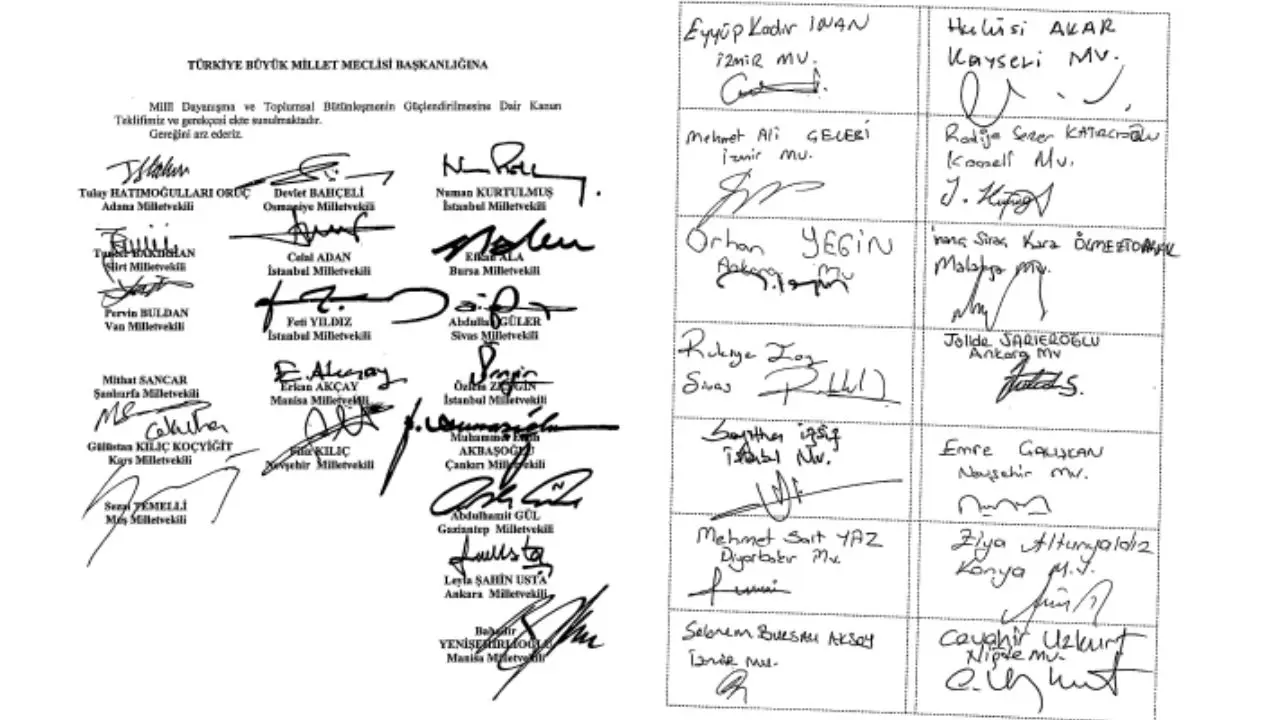 TÜRKİYE BÜYÜK MİLLET MECLİSİ BAŞKANLIĞINA
Milli Dayanışma ve Toplumsal Bütünleşmenin Güçlendirilmesine Dair Kanun
Teklifimiz ve gerekçesi ekte sunulmaktadır.
Gereğini arz ederiz.
Tulay HATIMOĞULLARI ORUÇ
Adana Milletvekili
BAKIRHAN
Siirt Milletvekili
Pervin BULDAN
Van Milletvekili
Mithat SANCAR
Şanlıurfa Milletvekili
Gülüstan KILIÇ KOÇYİĞİT
Kars Milletvekili
Sezai TEMELLİ
Muş Milletvekili
Devlet BAHÇELİ
Osmaniye Milletvekili
Celal ADAN
İstanbul Milletvekili
Feti YILDIZ
İstanbul Milletvekili
E. Akçay
Erkan AKÇAY
Manisa Milletvekili
Filiz KILIÇ
Nevşehir Milletvekili
Numan KURTULMUŞ
İstanbul Milletvekili
Efkan ALA
Bursa Milletvekili
Abdullah GÜLER
Sivas Milletvekili
Özlem ZENGİN
İstanbul Milletvekili
Muhammet Emin
AKBAŞOĞLU
Çankırı Milletvekili
Abdulhamit GÜL
Gaziantep Milletvekili
Leyla ŞAHİN USTA
Ankara Milletvekili
Bahadır
YENİŞEHİRLİOĞLU
Manisa Milletvekili
Eyyüp Kadir İNAN
İzmir MV.
Hulusi AKAR
Kayseri MV.
Mehmet Ali ÇELEBİ
İzmir Mv.
Radiye Sezer KATIRCIOĞLU
Kocaeli Mv.
Orhan YEGİN
Ankara Mv
İnanç Siraç Kara ÖLMEZTOPRAK
Malatya Mv.
Rukiye Toy
Sivas
Jülide SARIEROĞLU
Ankara Mv
İstanbul Mv.
Emre ÇALIŞKAN
Nevşehir Mv.
Mehmet Sait YAZ
Diyarbakır Mv.
Ziya Altunyaldız
Konya M.V.
Şebnem BURSALI AKSOY
İzmir Mv.
Cevahir Uzkurt
Niğde Mv.